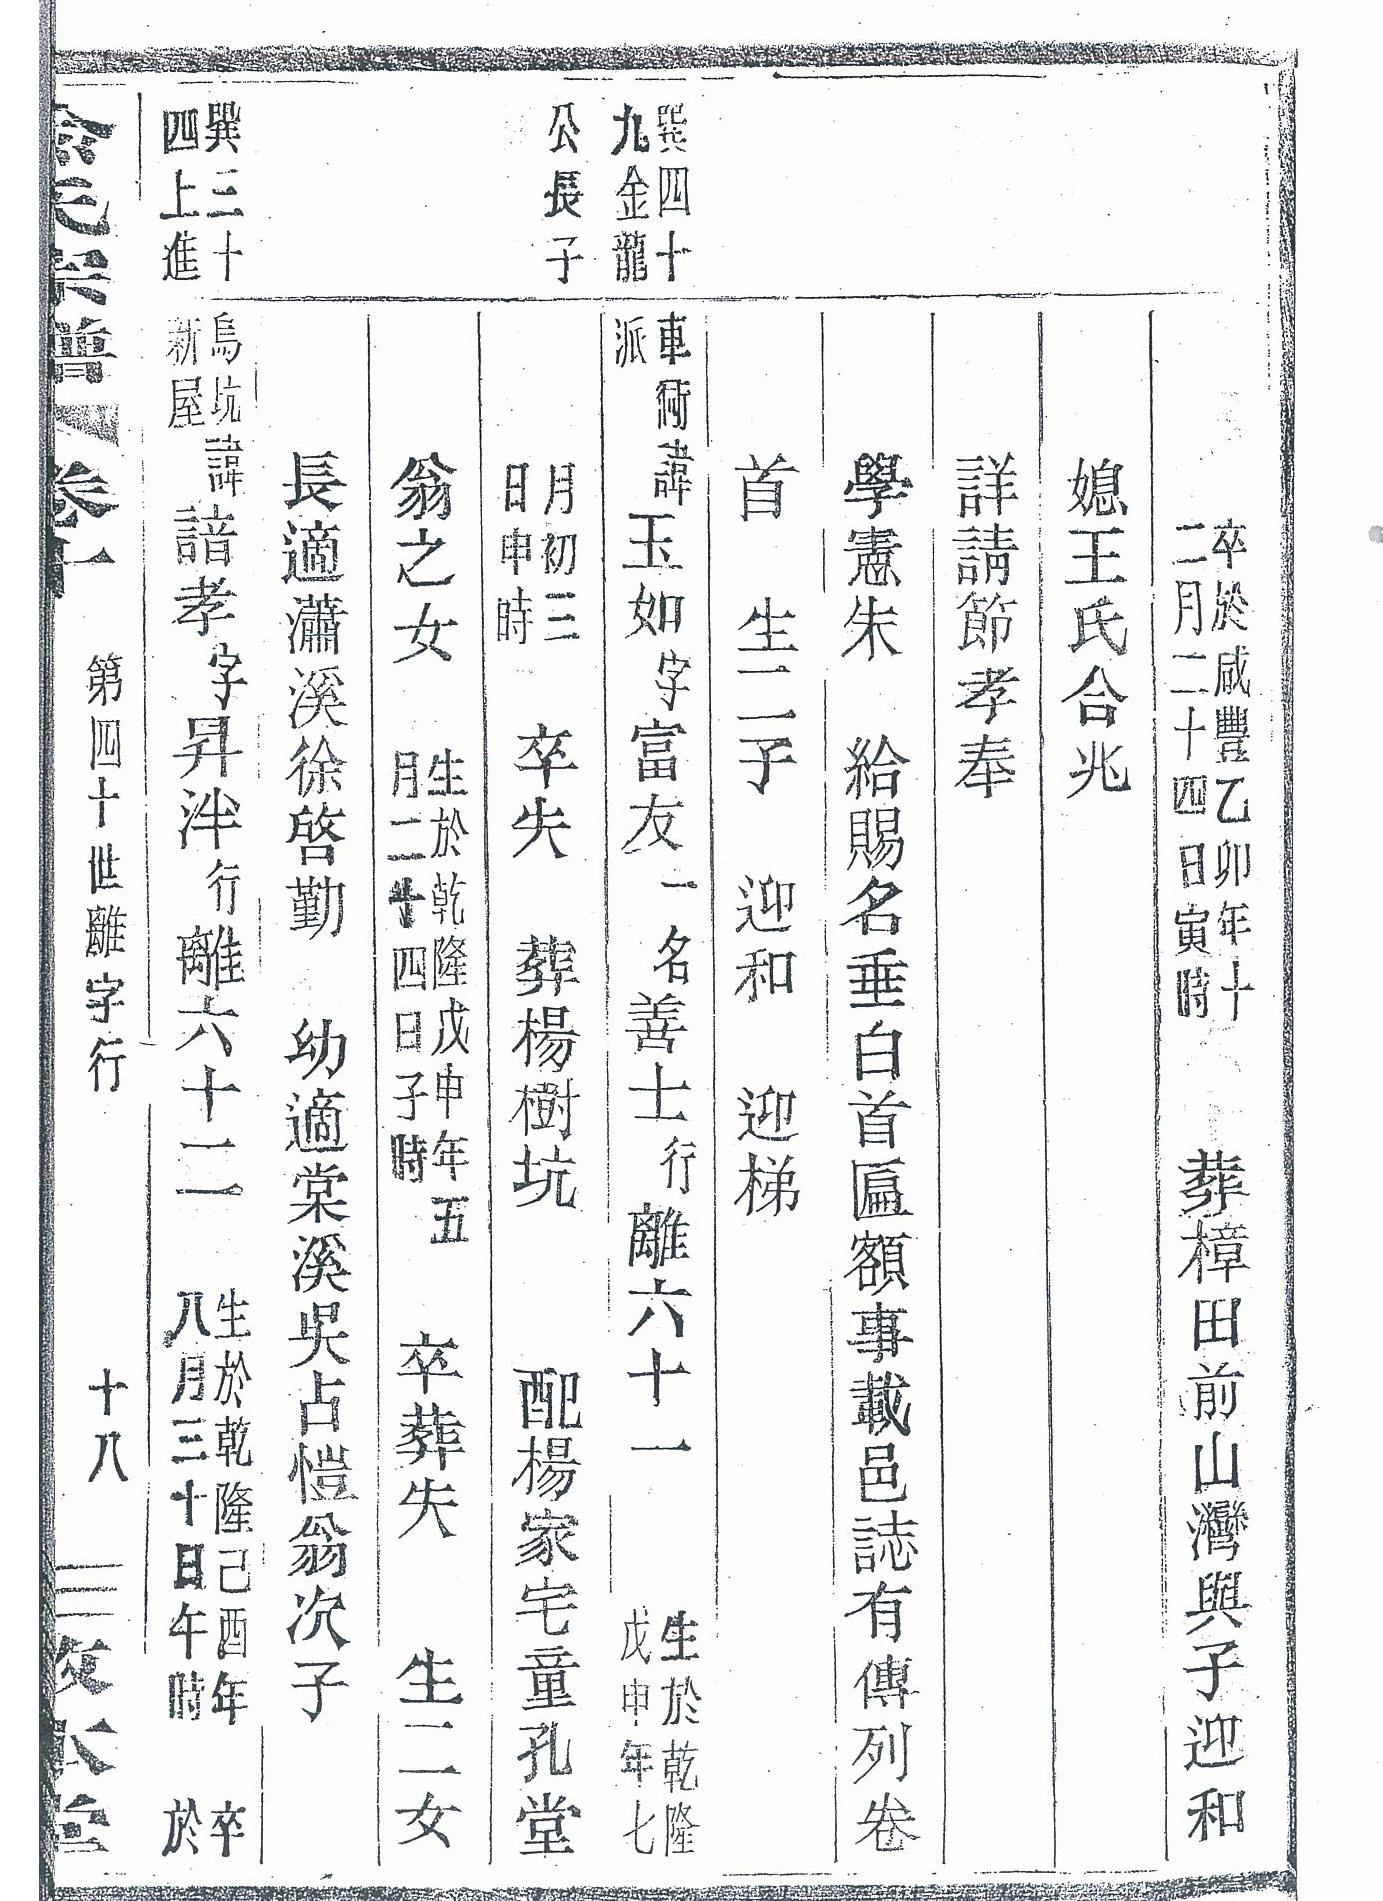 卒於咸豐乙卯年十
二月二十四日寅時
葬樟田前山灣與子迎和
媳王氏合兆
詳請節孝奉
學憲朱 給賜名垂白首匾額事載邑誌有傳列卷
首 生二子 迎和 迎梯
巽四十
九金龍
車衕諱
派
玉如字富友一名善士行離六十一
生於乾隆
戊申年七
公長子
月初三
日申時
卒失 葬楊樹坑 配楊家宅童孔堂
翁之女
生於乾隆戊申年五
月二十四日子時
卒葬失 生二女
長適瀟溪徐啓勤 幼適棠溪吳占愷翁次子
巽三十
四上進
烏坑諱
新屋
諳孝字昇泮行離六十二
生於乾隆己酉年 卒
八月三十日午時 於
氏宗譜 卷十 第四十世離字行 十八 本堂